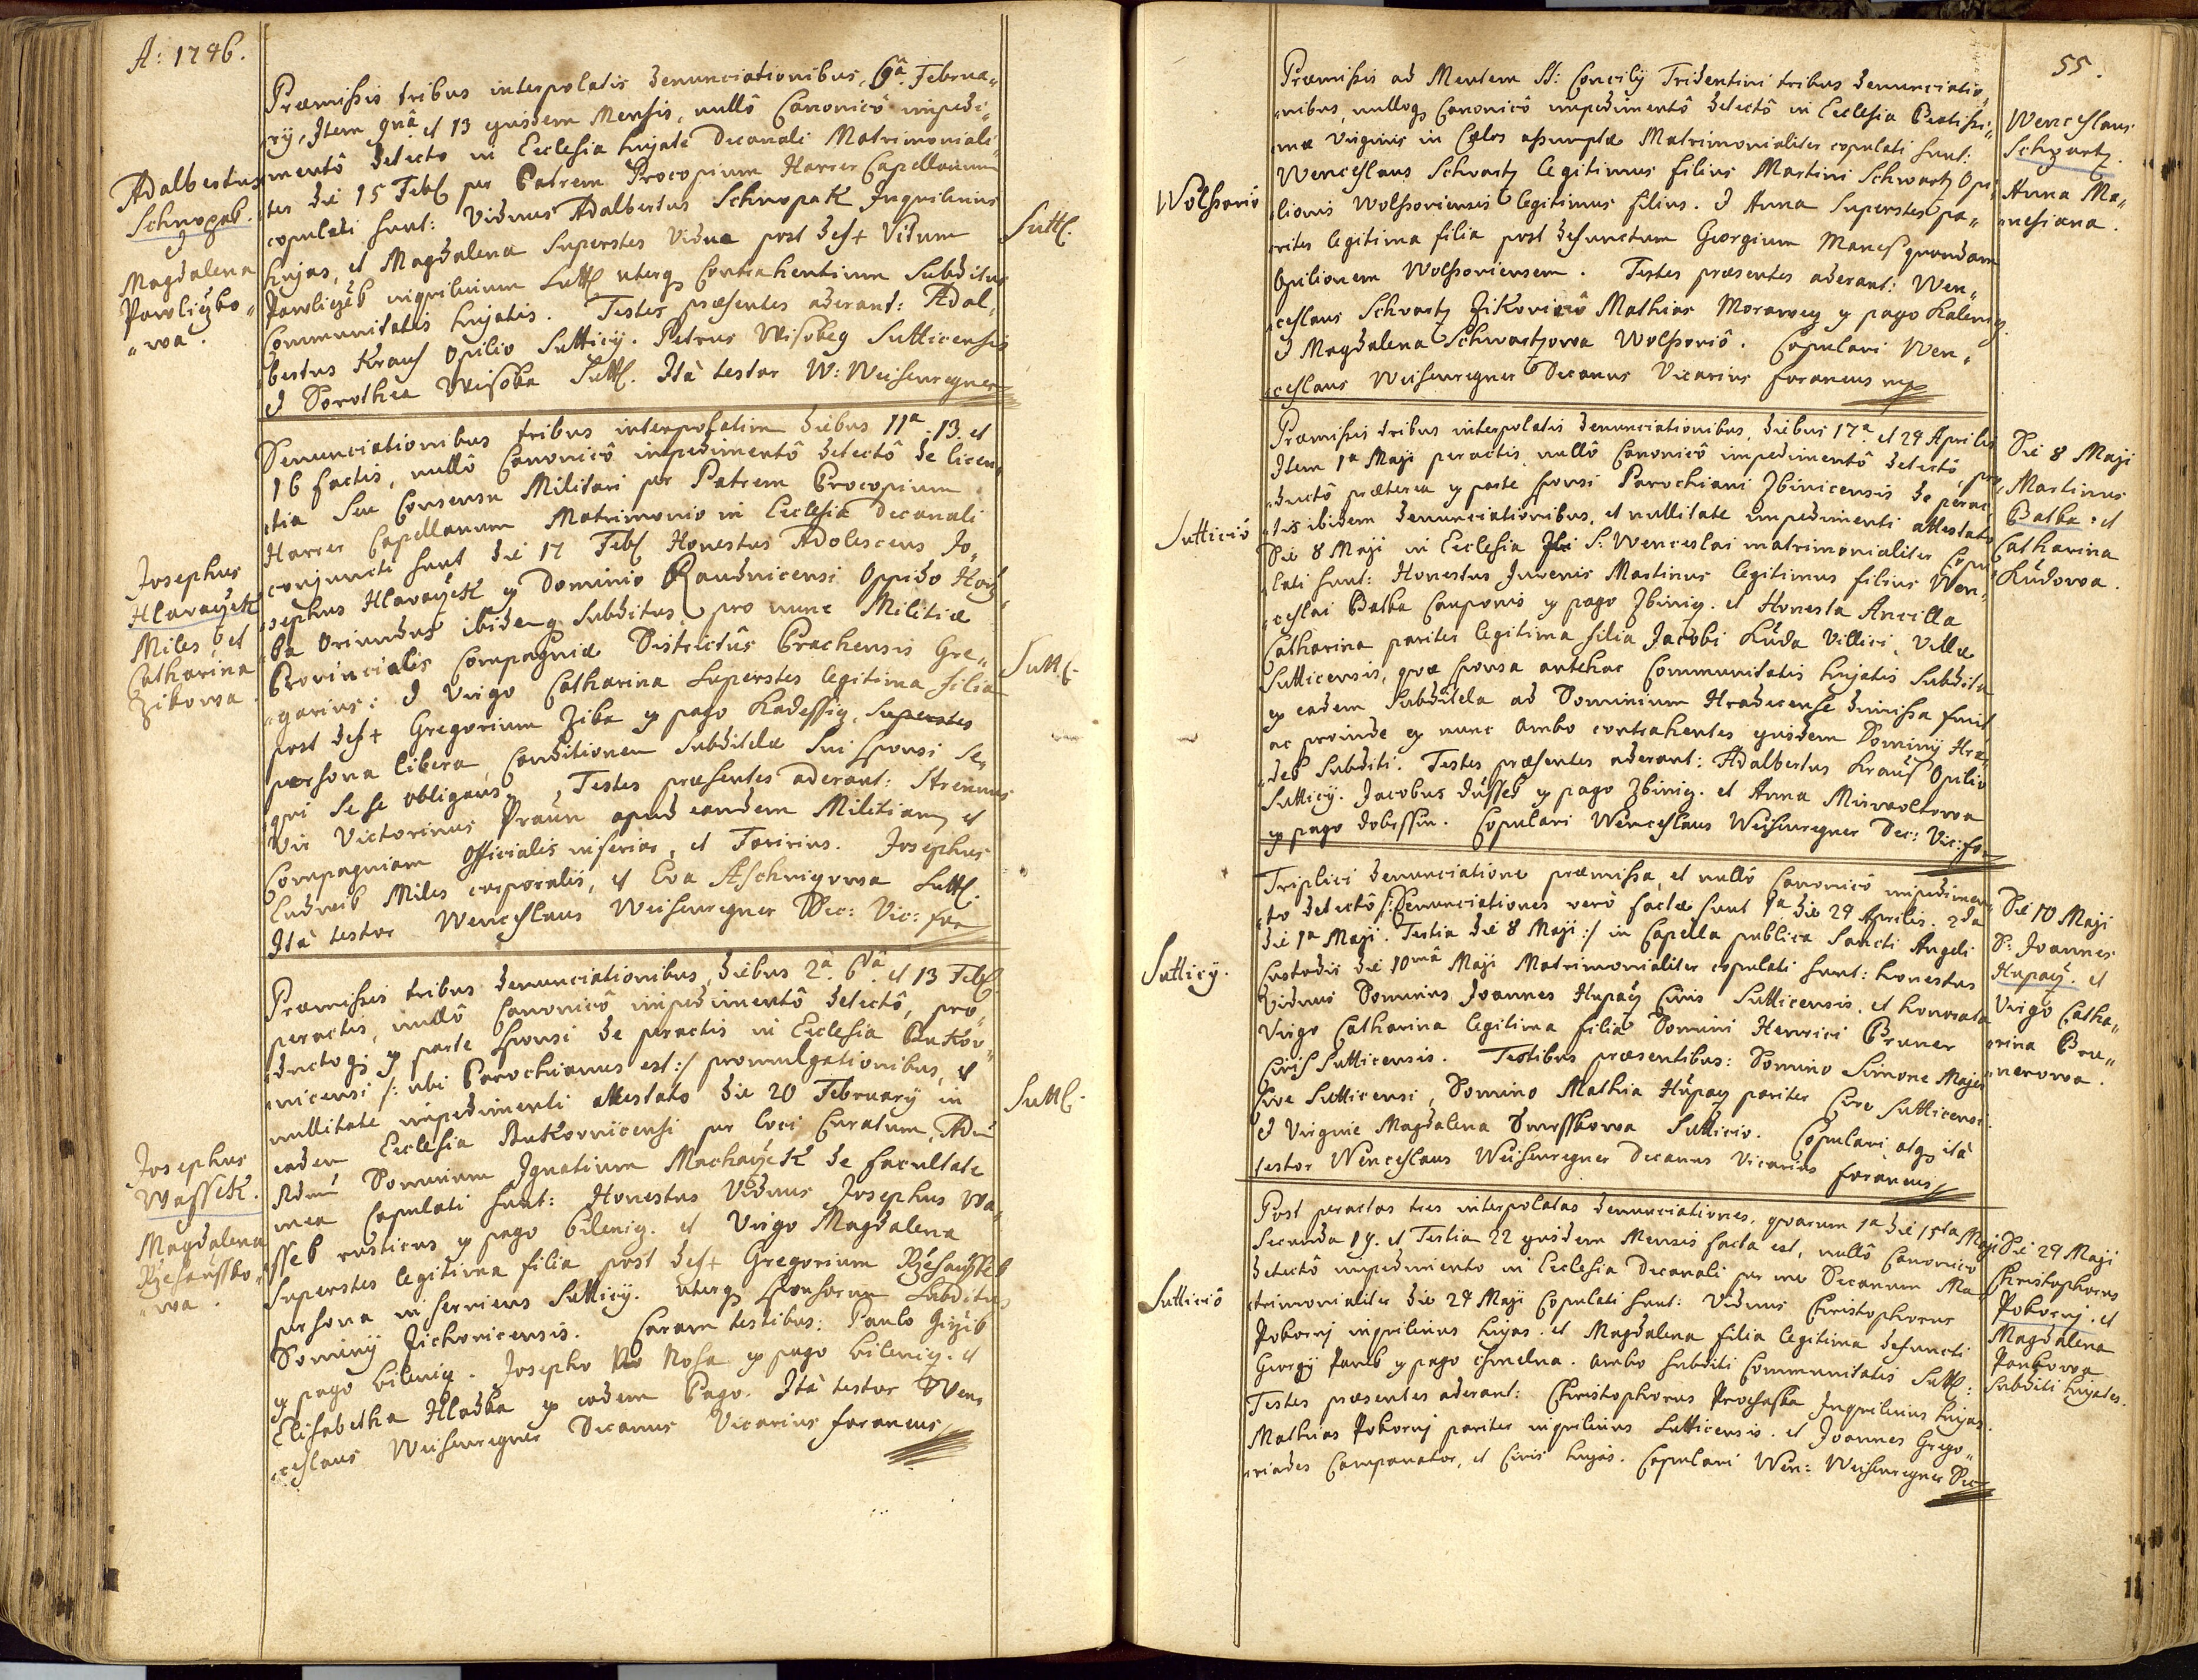 A: 1746.
Præmissis tribus interpolatis denunciationibus, 6â Februa„
rÿ, Item 9nâ et 13 ejusdem Mensis, nullô Canonicô impedi„
mentô detecto in Ecclesia hujate Decanali Matrimoniali„
ter die 15 Feb. per Patrem Procopium Harrer Capellanum
copulati sunt: Viduus Adalbertus Schnopak Inquilinus
hujas, et Magdalena Superstes Vidua post def+ Vitum
Pawliczek inquilinum Sutt. uterq Contrahentium Subditus
Communitatis hujatis. Testes præsentes aderant: Adal„
bertus Kraus Opilio Sutticÿ. Petrus Wisokeg Sutticensis
et Dorothea Wisoka Sutt. Ità testor W: Weisenregner
Adalbertus
Schnopak.
et
Magdalena
Pawliczko„
„wa.
Sutt.
Denunciationibus tribus interpolatim diebus 11a. 13. et
16 factis, nullô Canonicô impedimentô detectô de licen„
tia seu Consensu Militari per Patrem Procopium
Harrer Capellanum Matrimonio in Ecclesia Decanali
conjuncti sunt die 17 Feb. Honestus Adolescens Jo„
sephus Hlavaczek ex Dominio Raudnicensi Oppido
ka Oriundus ibidemq Subditus, pro nunc Militiæ
Provincialis Compagniæ Districtûs Prachensis Gre„
garius: et Virgo Catharina Superstes legitima filia
post def+ Gregorium Zika ex pago Kadessicz, Superstes
persona libera, Conditionem Subditelæ sui sponsi se„
qui sese obligans. Testes præsentes aderant: Strenuus
Vir Victorinus Praun apud eandem Militiam et
Compagniam Officialis inferior, et Foririus. Josephus
Ludwik Miles corporalis, et Eva Aschnigowa Sutt.
Ità testor Wenceslaus Weisenregner Dec: Vic: for
Josephus
Hlavaczek
Miles, et
Catharina
Zikowa.
Sutt.
Præmissis tribus denunciationibus, diebus 2â. 6tâ et 13 Feb.
peractis, nullô Canonicô impedimentô detectô, pro„
ductoq; ex parte Sponsi de peractis in Ecclesia Bukov„
nicensi /: ubi Parochianus est :/ promulgationibus, et
nullitate impedimenti attestato die 20 February in
eadem Ecclesia Bukovnicensi per loci Curatum, Adm
Rdum Dominum Ignatium Machaczek de facultate
mea Copulati sunt: Honestus Viduus Josephus Wa„
ssek rusticus ex pago Bilenicz. et Virgo Magdalena
Superstes legitima filia post def+ Gregorium Rzehaussek
persona inserviens Sutticÿ. uterq Sponsorum Subditus
Dominÿ Zichovicensis. Coram testibus: Paulo Girzik
ex pago Bilenicz. Josepho Nosa ex pago Bilenicz. et
Elisabetha Hladka ex eodem Pago. Ità testor Wen„
ceslaus Weisenregner Decanus Vicarius foraneus
Josephus
Wassek.
Magdalena
Rzehaussko„
„wa.
Sutt.
55.
Præmissis ad Mentem SS: Concilÿ Tridentini tribus denunciatio„
nibus, nulloq Canonicô impedimentô detectô in Ecclesia Beatissi„
mæ Virginis in Cælos assumptæ Matrimonialiter copulati sunt:
Wenceslaus Schwartz legitimus filius Martini Schwartz Opi„
lionis Wolssoviensis legitimus filius. et Anna Superstes pa„
riter legitima filia post defunctum Georgium Manes quondam
Opilionem Wolssoviensem. Testes præsentes aderant: Wen„
ceslaus Schwartz Zikoviciô Mathias Morawecz ex pago Kalenicz.
et Magdalena Schwartzowa Wolssoviô. Copulavi Wen„
ceslaus Weisenregner Decanus Vicarius foraneus mpp
Wolssoviô
Wenceslaus
Schwartz.
Anna Ma„
nesiana.
Præmissis tribus interpolatis denunciationibus, diebus 17a. et 24 Aprilis
Item 1a Maji peractis, nullô Canonicô impedimentô detectô, pro„
ductô præterea ex parte sponsi Parochiani Zbinicensis de perac„
tis ibidem denunciationibus, et nullitate impedimenti attestato
Die 8 Maji in Ecclesia S: Wenceslai matrimonialiter Copu„
lati sunt: Honestus Juvenis Martinus legitimus filius Wen„
ceslai Batka Cauponis ex pago Zbinicz. et Honesta Ancilla
Catharina pariter legitima filia Jacobi Kuda Villici, Villæ
Sutticensis, quæ sponsa antehac Communitatis hujatis Subdita
ex eadem Subditela ad Dominium Hradecense dimissa fuit,
ac proinde ex nunc ambo contrahentes ejusdem Dominÿ Hra„
dek Subditi. Testes præsentes aderant: Adalbertus Kraus Opilio
Sutticÿ. Jacobus Dussek ex pago Zbinicz. et Anna Mirwoltowa
ex pago Dobrssin. Copulavi Wenceslaus Weisenregner Dec: Vic: for
Sutticiô
Die 8 Maji
Martinus
Batka. et
Catharina
Kudowa.
Triplici denunciatione præmissa, et nullô Canonicô impedimen„
to detectô /: Denunciationes verò factæ sunt 1a die 24 Aprilis. 2da
die 1a Maji. Tertia die 8 Maji :/ in Capella publica Sancti Angeli
Custodis die 10mâ Maji Matrimonialiter copulati sunt: honestus
Viduus Dominus Joannes Hupacz Civis Sutticensis, et honorata
Virgo Catharina legitima filia Domini Henrici Bruner
Civis Sutticensis. Testibus præsentibus: Domino Simone Majer
Cive Sutticensi, Domino Mathia Hupacz pariter Cive Sutticensi
et Virgine Magdalena Dwrsskowa Sutticio. Copulavi atq ità
testor Wenceslaus Weisenregner Decanus Vicarius
foraneus
Sutticÿ.
Die 10 Maji
D: Joannes
Hupacz. et
Virgo Catha„
rina Bru„
nerowa.
Post peractas tres interpolatas denunciationes, quarum 1a die 15ta Maji
Secunda 19. et Tertia 22 ejusdem Mensis facta est, nullô Canonicô
detectô impedimento in Ecclesia Decanali per me Decanum Ma„
trimonialiter die 24 Maji Copulati sunt: Viduus Christophorus
Pokornj inquilinus hujas. et Magdalena filia legitima defuncti
Georgÿ Pauk ex pago Chmelna. ambo subditi Communitatis Sutt:
Testes præsentes aderant: Christophorus Prochaska Inquilinus hujas.
Mathias Pokornj pariter inquilinus Sutticensis. et Joannes Grego„
riades Campanator, et Civis hujas. Copulavi Wen: Weisenregner Dec
Sutticiô
Die 24 Maji
Christophorus
Pokornj. et
Magdalena
Paukowa
subditi hujates.